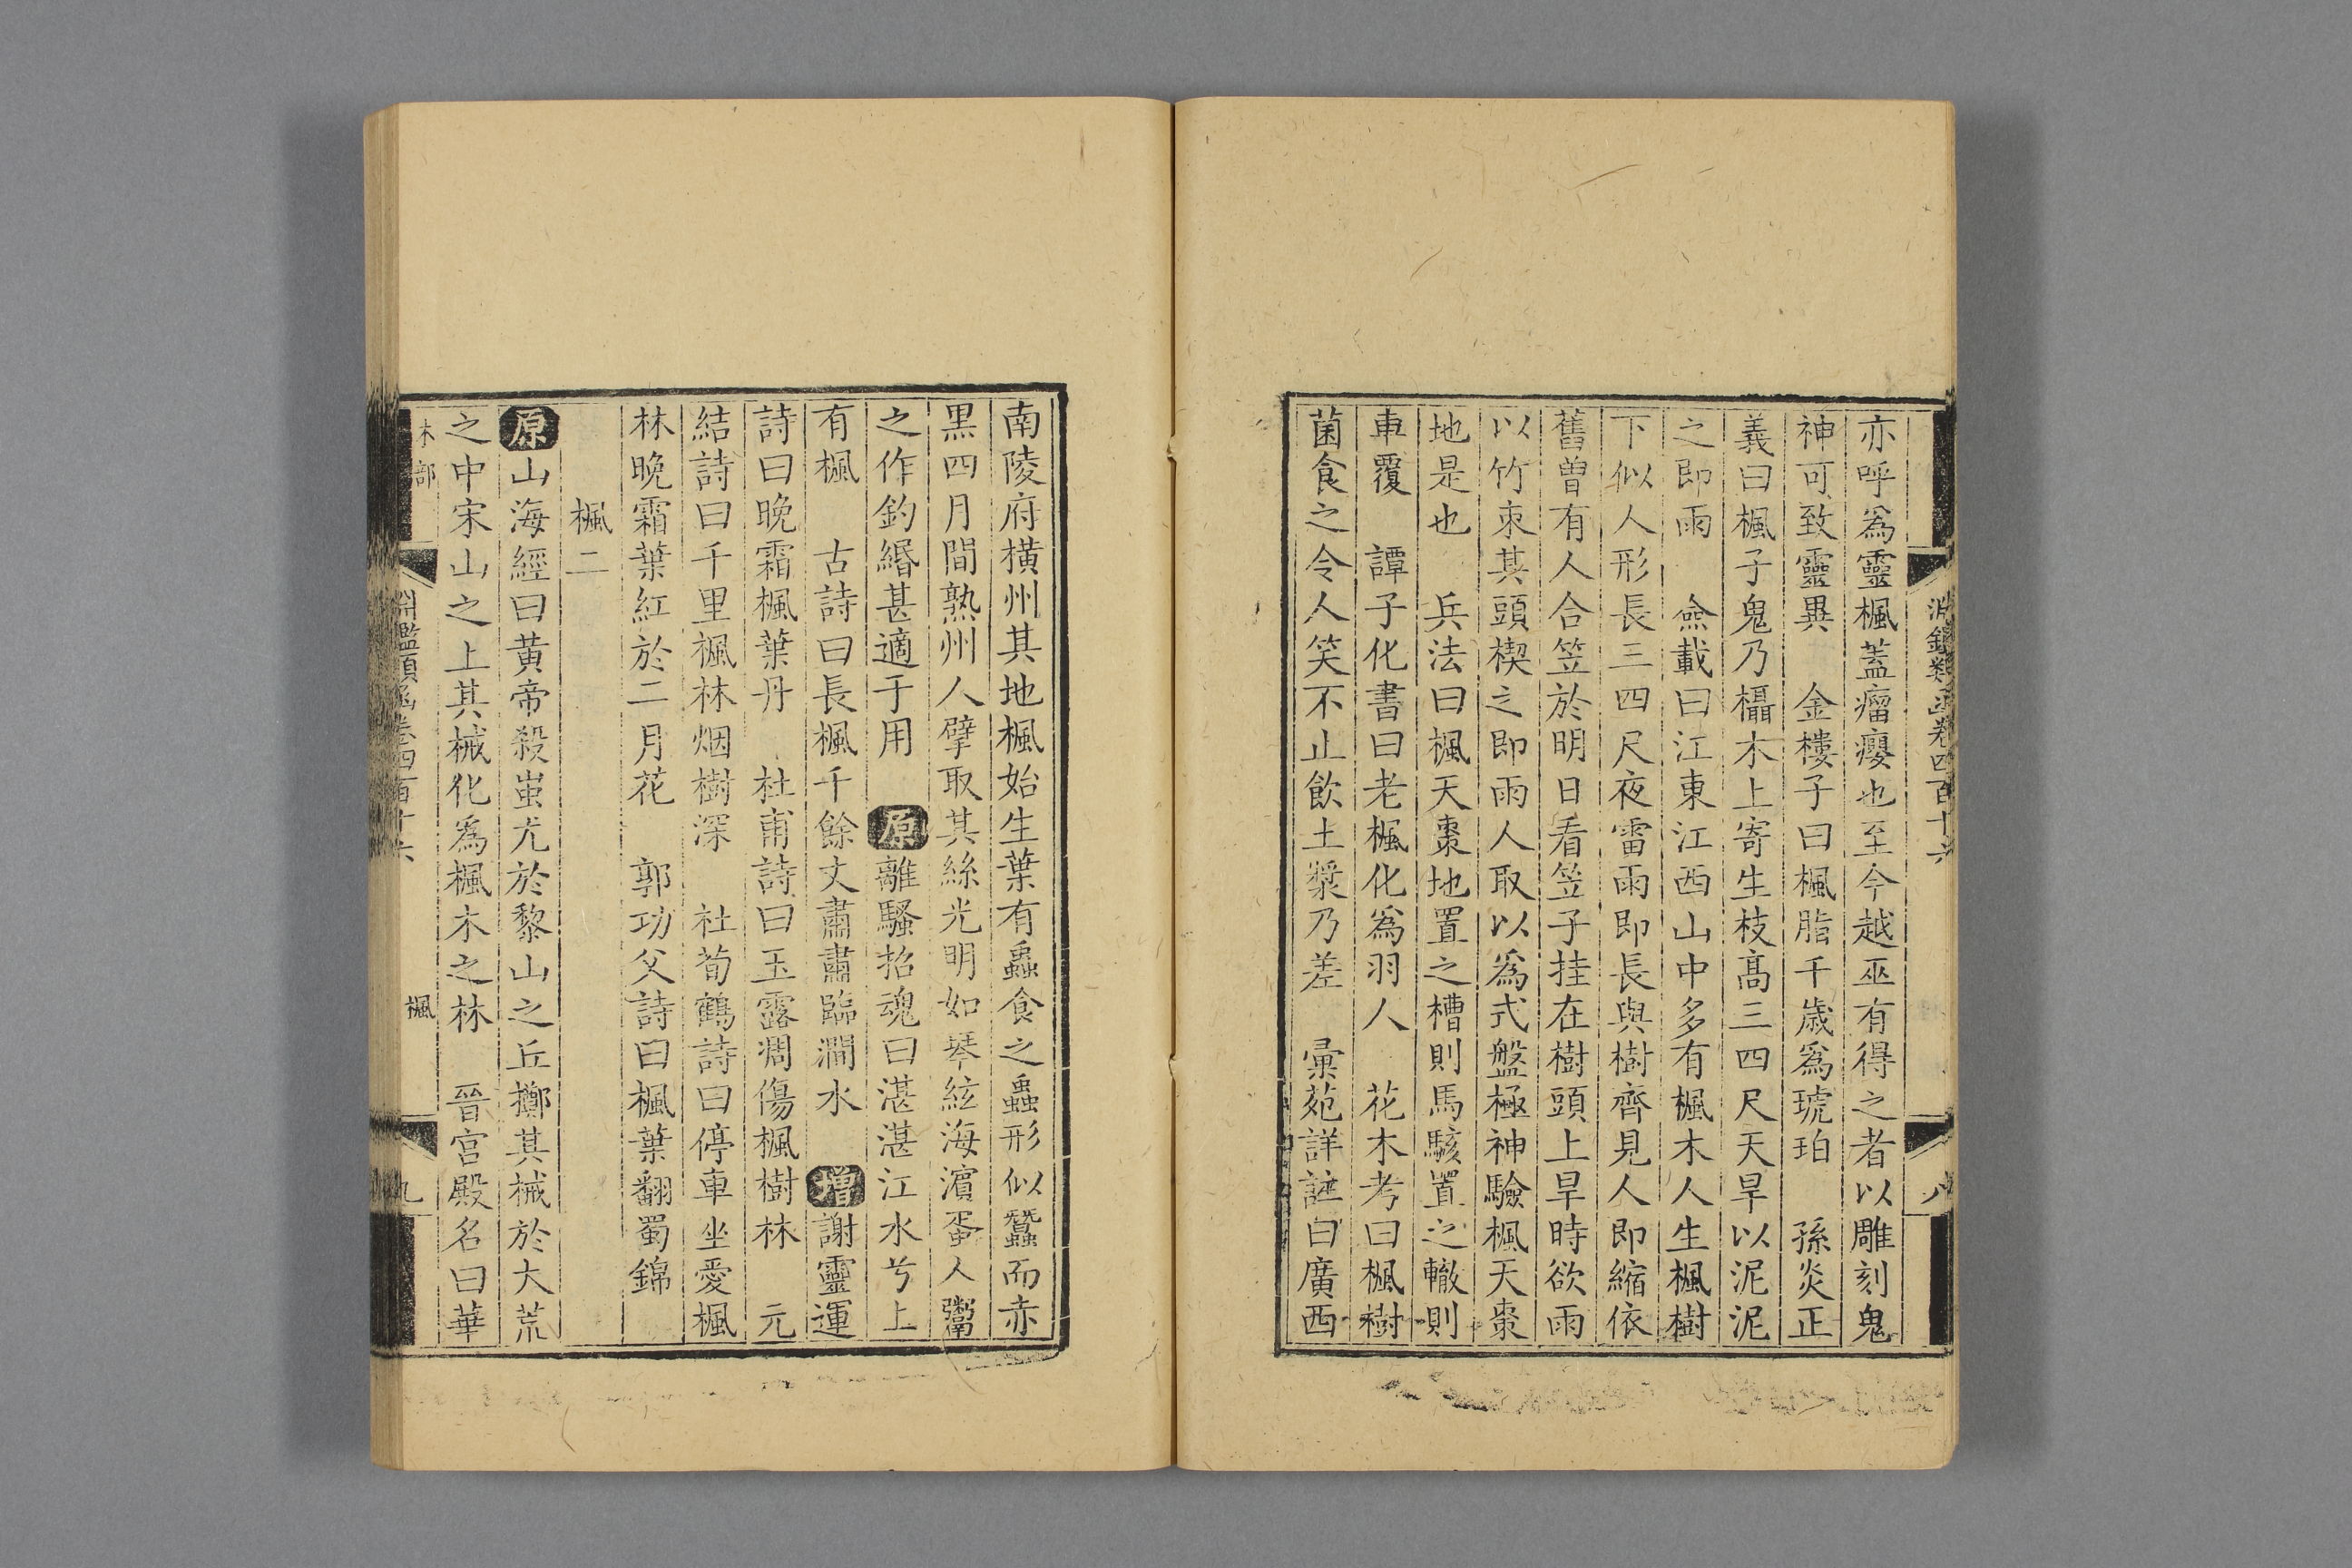 淵鑑類函卷四百十六
八
亦呼爲靈楓蓋瘤癭也至今越巫有得之者以雕刻鬼
神可致靈異　金樓子曰楓脂千歲爲琥珀　孫炎正
義曰楓子鬼乃欇木上寄生枝高三四尺天旱以泥泥
之即雨　僉載曰江東江西山中多有楓木人生楓樹
下似人形長三四尺夜雷雨即長與樹齊見人即縮依
舊曾有人合笠於明日看笠子挂在樹頭上旱時欲雨
以竹束其頭楔之即雨人取以爲式盤極神驗楓天棗
地是也　兵法曰楓天棗地置之槽則馬駭置之轍則
車覆　譚子化書曰老楓化爲羽人　花木考曰楓樹
菌食之令人笑不止飲土漿乃差　彙苑詳註曰廣西
南陵府橫州其地楓始生葉有蟲食之蟲形似蠶而赤
黑四月間熟州人擘取其絲光明如琴絃海濱蛋人鬻
之作釣緡甚適于用　原離騷招魂曰湛湛江水兮上
有楓　古詩曰長楓千餘丈肅肅臨澗水　增謝靈運
詩曰晚霜楓葉丹　杜甫詩曰玉露凋傷楓樹林　元
結詩曰千里楓林烟樹深　社荀鶴詩曰停車坐愛楓
林晚霜葉紅於二月花　郭功父詩曰楓葉翻蜀錦
楓二
原山海經曰黃帝殺蚩尤於黎山之丘擲其械於大荒
之中宋山之上其械化爲楓木之林　晉宮殿名曰華
木部
楓
淵鑑類函卷四百十六
九